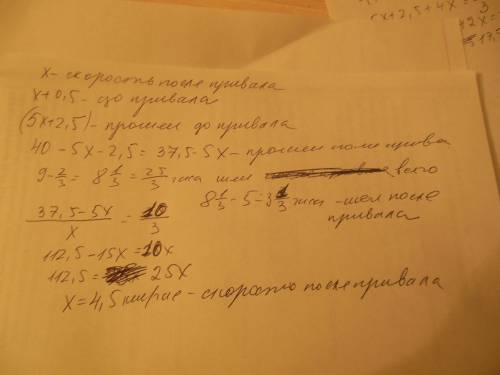 5x+2,5+4x=
x - скорость после привала
x+0,5 - до привала
(5x+2,5) - прошли до привала
40 - 5x - 2,5 = 37,5 - 5x - прошли после прива
9 - 2/3 = 8 1/3 = 25/3 часа шли всего
8 1/3 - 5 = 3 1/3 часа - шел после привала
37,5-5x / x = 10/3
112,5 - 15x = 10x
112,5 = 25x
x = 4,5 - скорость после привала